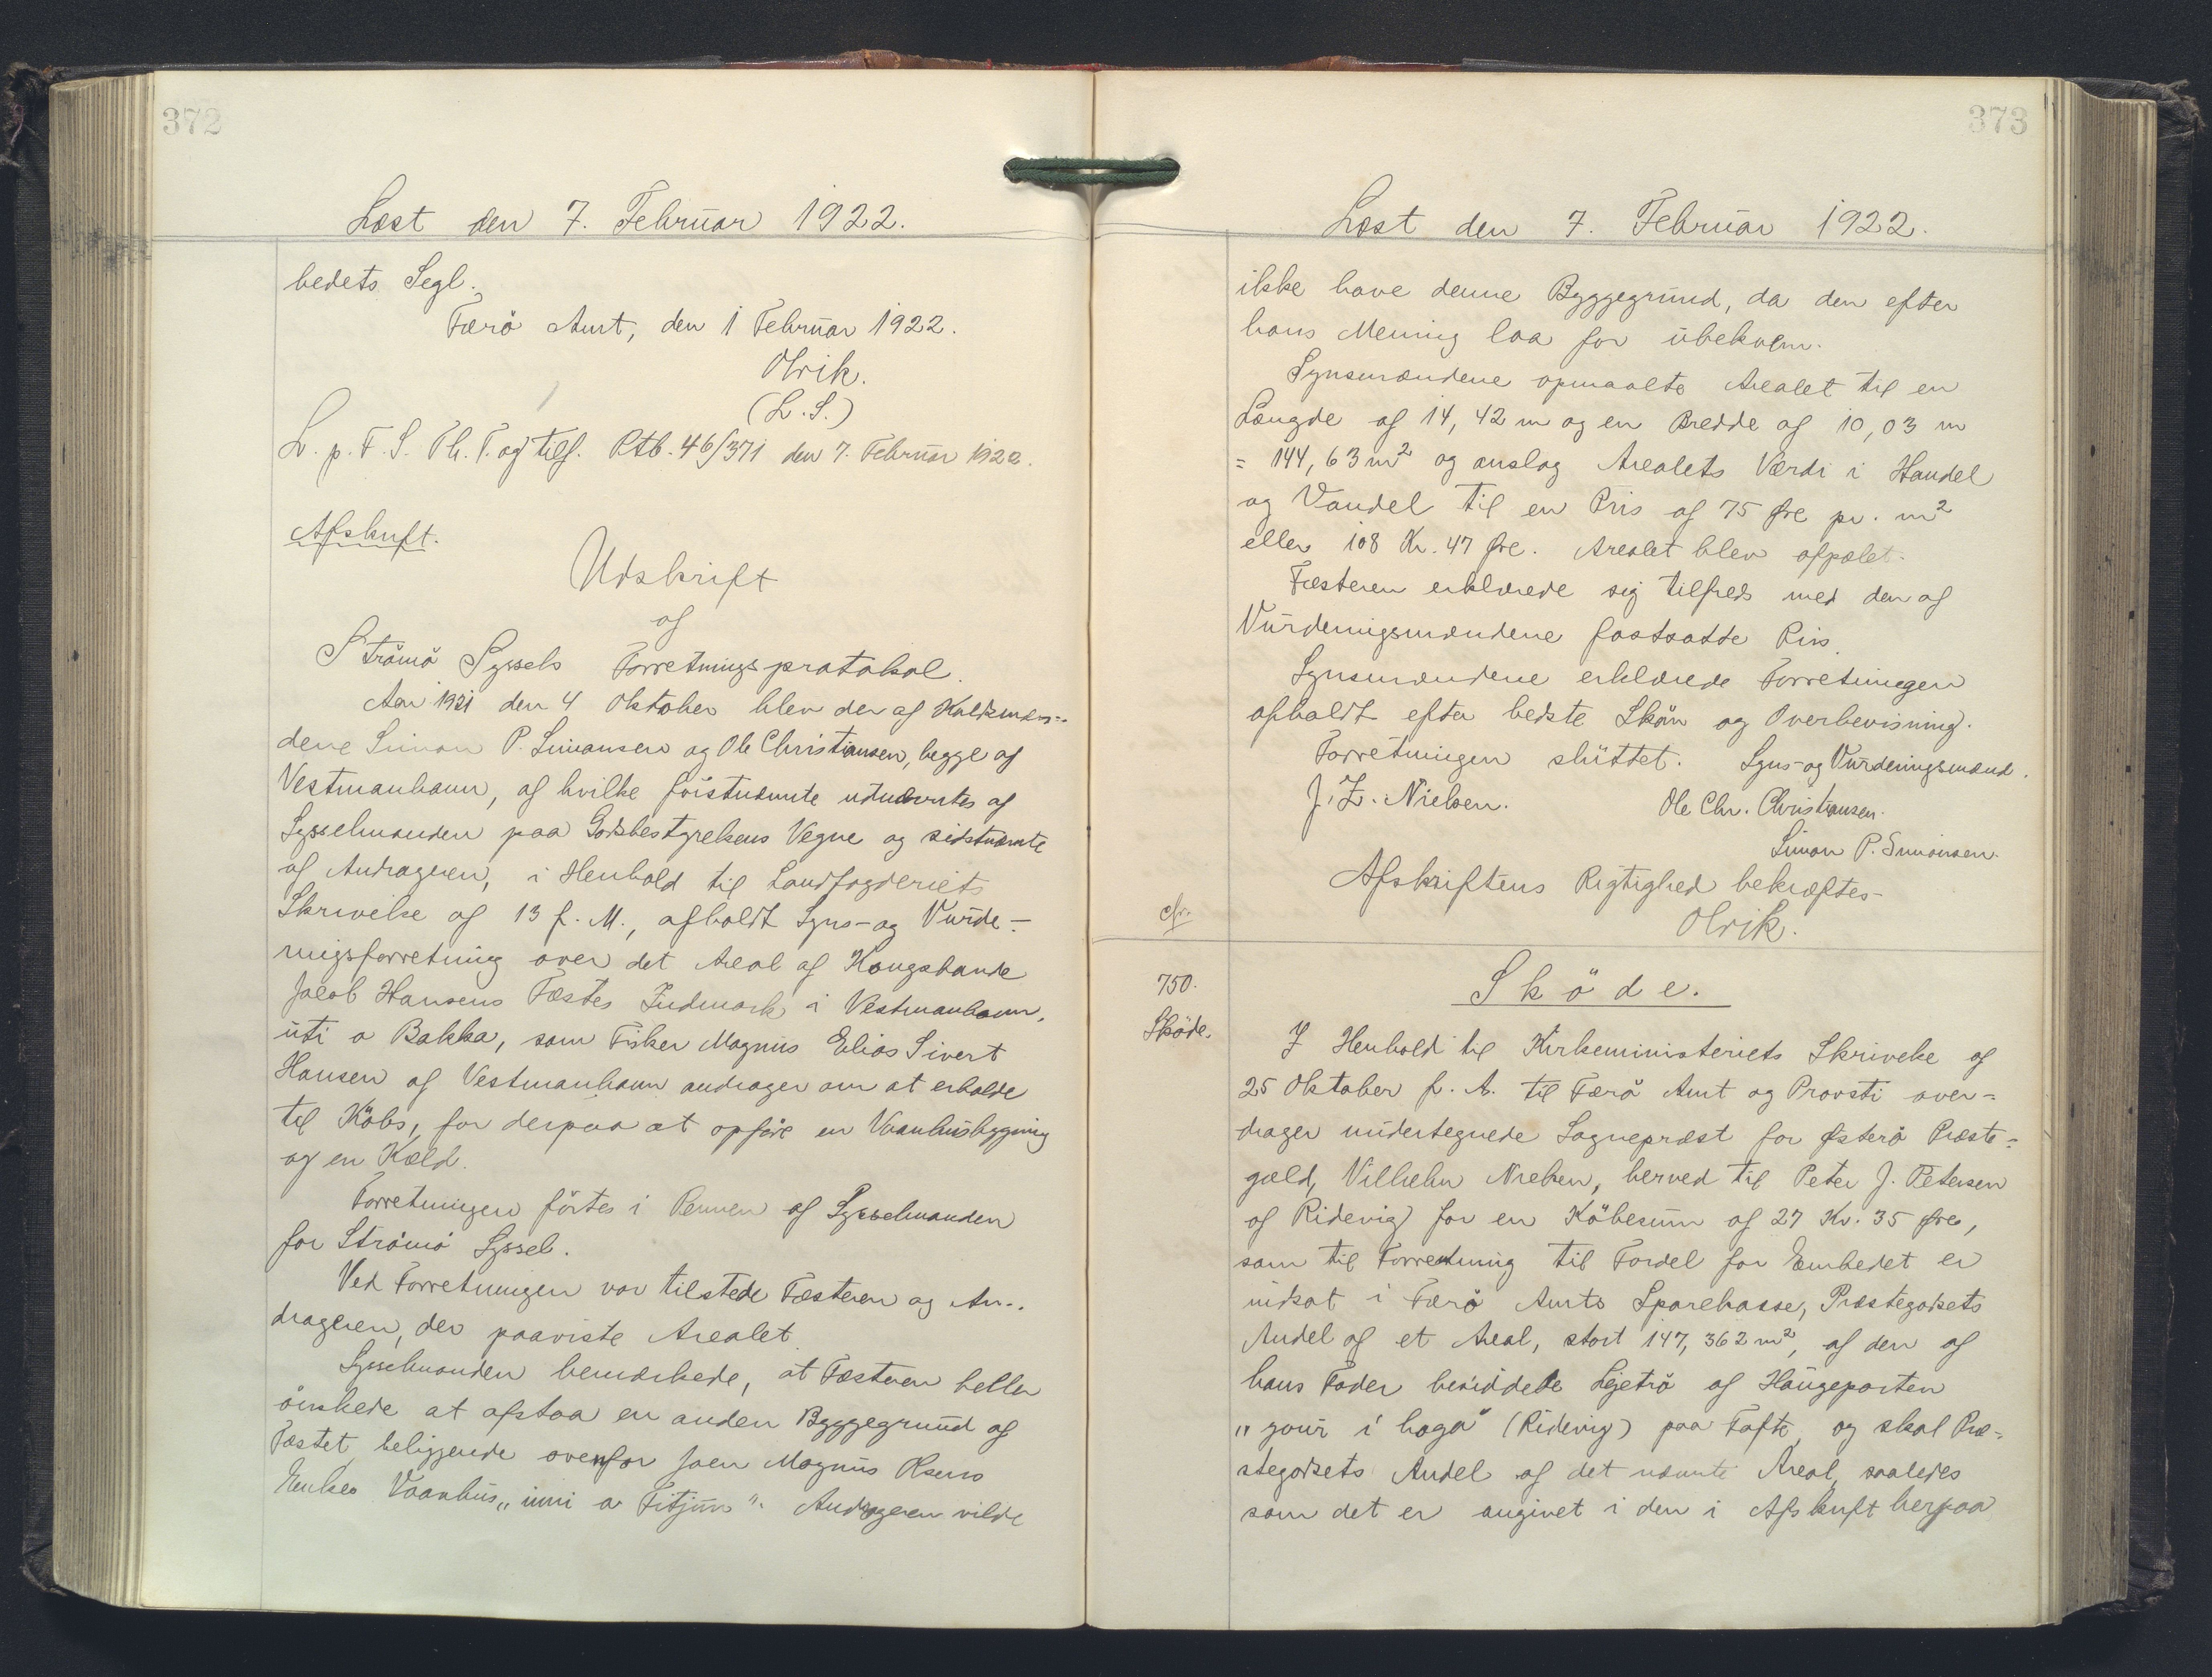 372
Læst den 7. Februar 1922.
bedets Segl.
Færö Amt, den 1 Februar 1922.
Olrik.
(L.S.)
L. p. F. S. Th. T. og tilf. Rtb. 46/371 den 7. Februar 1922.
Afskrift.
Udskrift
af
Strömö Syssels Forretningsprotokol.
Aar 1921 den 4 Oktober blev der af Kaldsmæn-
dene Simon P. Simonsen og Ole Christiansen, begge af
Vestmanhavn, af hvilke förstnævnte udnævntes af
Sysselmanden paa Godsbestyrelsens Vegne og sidstnævnte
af Andrageren, i Henhold til Landfogderiets
Skrivelse af 13 f. M., afholdt Syns- og Vurde-
ringsforretning over det Areal af Kongsbonde
Jacob Hansens Fæstes Indmark i Vestmanhavn,
uti a Bakka, som Fisker Magnus Elias Sivert
Hansen af Vestmanhavn andrager om at erholde
til Köbs, for derpaa at opföre en Vaanhusbygning
og en Kæld.
Forretningen förtes i Pennen af Sysselmanden
for Strömö Syssel.
Ved Forretningen var tilstede Fæsteren og An-
drageren, der paaviste Arealet.
Sysselmanden bemærkede, at Fæsteren heller
önskede at afstaa en anden Byggegrund af
Fæstet, beliggende ovenfor Joen Magnus Olsens
Enkes Vaanhus, "inni a Fitjum". Andrageren vilde
373
Læst den 7. Februar 1922.
ikke have denne Byggegrund, da den efter
hans Mening laa for ubekvem.
Synsmændene opmaalte Arealet til en
Længde af 14,42 m og en Bredde af 10,03 m
= 144,63 m² og anslog Arealets Værdi i Handel
og Vandel til en Pris af 75 Øre pr. m²
eller 108 Kr. 47 Øre. Arealet blev afpælet.
Fæsteren erklærede sig tilfreds med den af
Vurderingsmændene fastsatte Pris.
Synsmændene erklærede Forretningen
afholdt efter bedste Skön og Overbevisning.
Forretningen sluttet. Syns- og Vurderingsmænd.
J. Z. Nielsen. Ole Chr. Christiansen.
Simon P. Simonsen.
Afskriftens Rigtighed bekræftes
cfr.
Olrik.
750.
Sköde.
Sköde.
I Henhold til Kirkeministeriets Skrivelse af
25 Oktober f. A. til Færö Amt og Provsti over-
drager undertegnede Sognepræst for Østerö Præste-
gæld, Vilhelm Nielsen, herved til Peter J. Petersen
af Ridevig for en Köbesum af 27 Kr. 35 Øre,
som til Forrentning til Fordel for Embedet er
indsat i Færö Amts Sparekasse, Præstegodsets
Andel af et Areal, stort 147,362 m², af den af
hans Fader besiddede Lejetrö af Haugeparten
"gour i haga" (Ridevig) paa Tofte, og skal Præ-
stegodsets Andel af det nævnte Areal, saaledes
som det er angivet i den i Afskrift herpaa